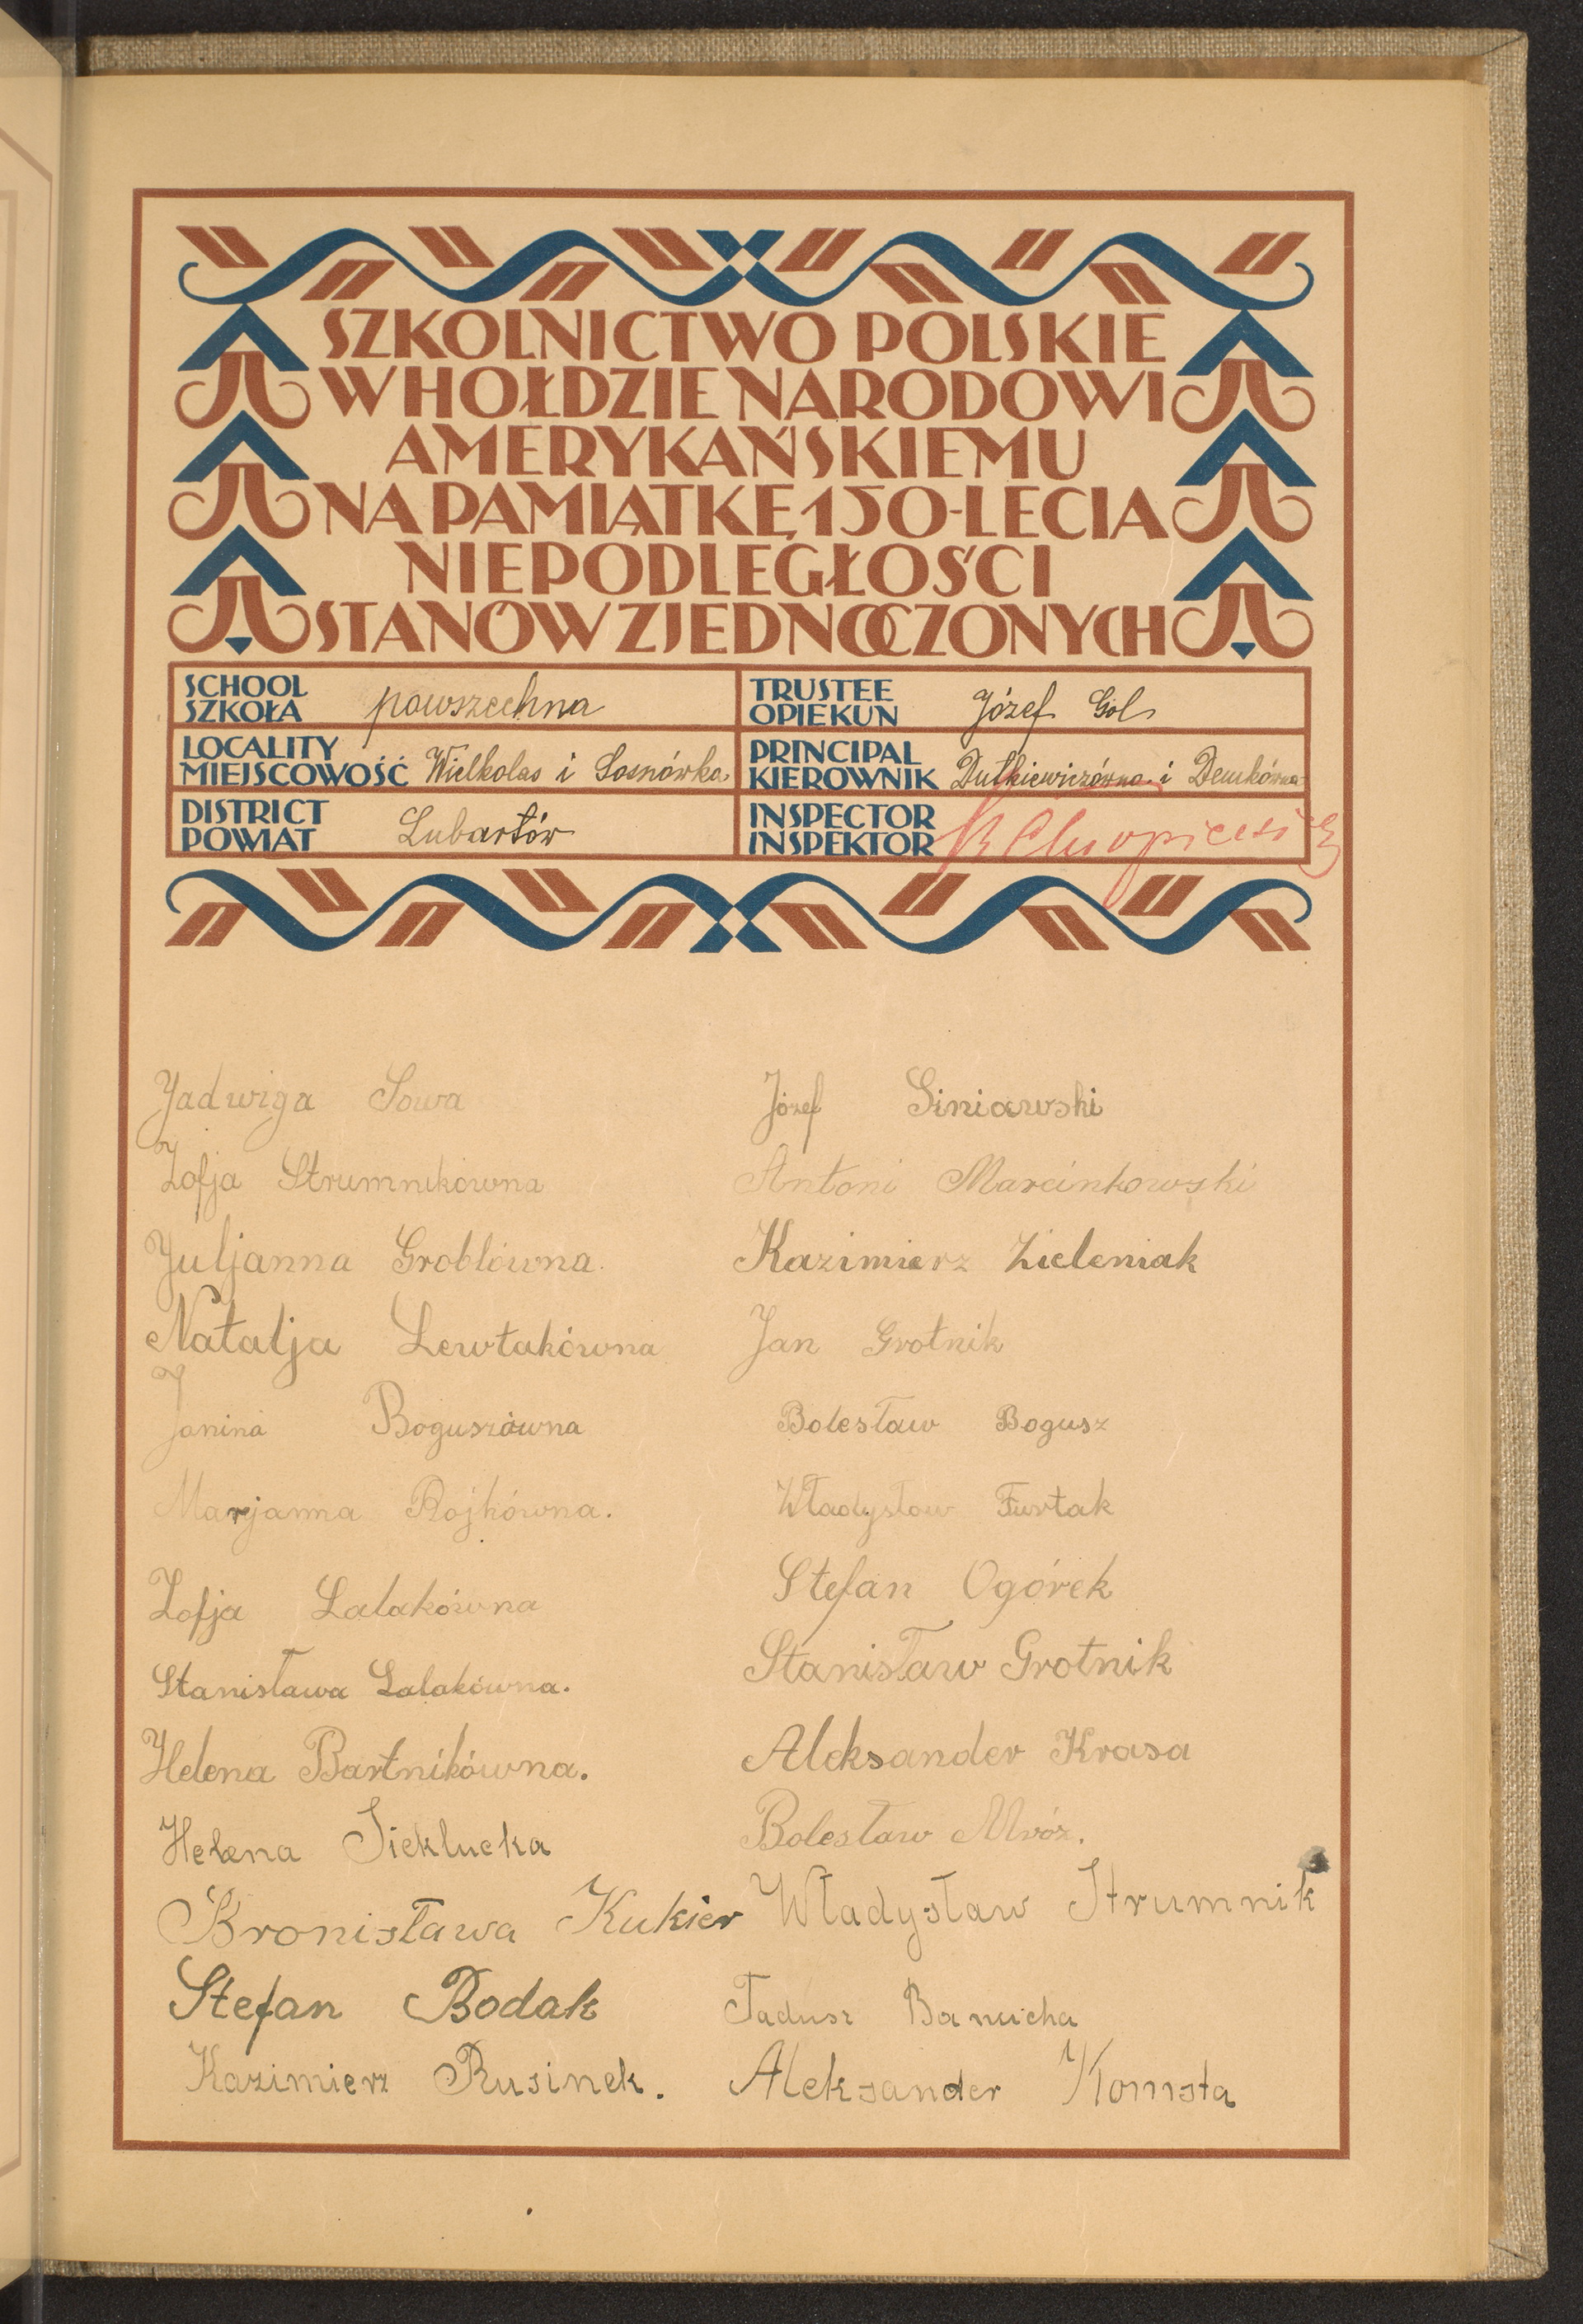 SZKOLNICTWO POLSKIE
W HOŁDZIE NARODOWI
AMERYKAŃSKIEMU
NA PAMIĄTKĘ 150-LECIA
NIEPODLEGŁOŚCI
STANÓW ZJEDNOCZONYCH
SCHOOL
SZKOŁA powszechna
TRUSTEE
OPIEKUN Józef Gol
LOCALITY
MIEJSCOWOŚĆ Wielkolas i Sosnówka
PRINCIPAL
KIEROWNIK Dutkiewiczówna i Demkówna
DISTRICT
POWIAT Lubartów
INSPECTOR
INSPEKTOR
Jadwiga Sowa
Zofja Strumnikówna
Juljanna Groblówna.
Natalja Lewtakówna
Janina Boguszówna
Marjanna Rojkówna.
Zofja Lalakówna
Stanisława Lalakówna.
Helena Bartnikówna.
Helena Sieklucka
Bronisława Kukier
Stefan Bodak
Kazimierz Rusinek.
Józef Siniawski
Antoni Marcinkowski
Kazimierz Zieleniak
Jan Grotnik
Bolesław Bogusz
Władysław Furtak
Stefan Ogórek
Stanisław Grotnik
Aleksander Krasa
Bolesław Mróz.
Władysław Strumnik
Tadusz Banucha
Aleksander Komsta